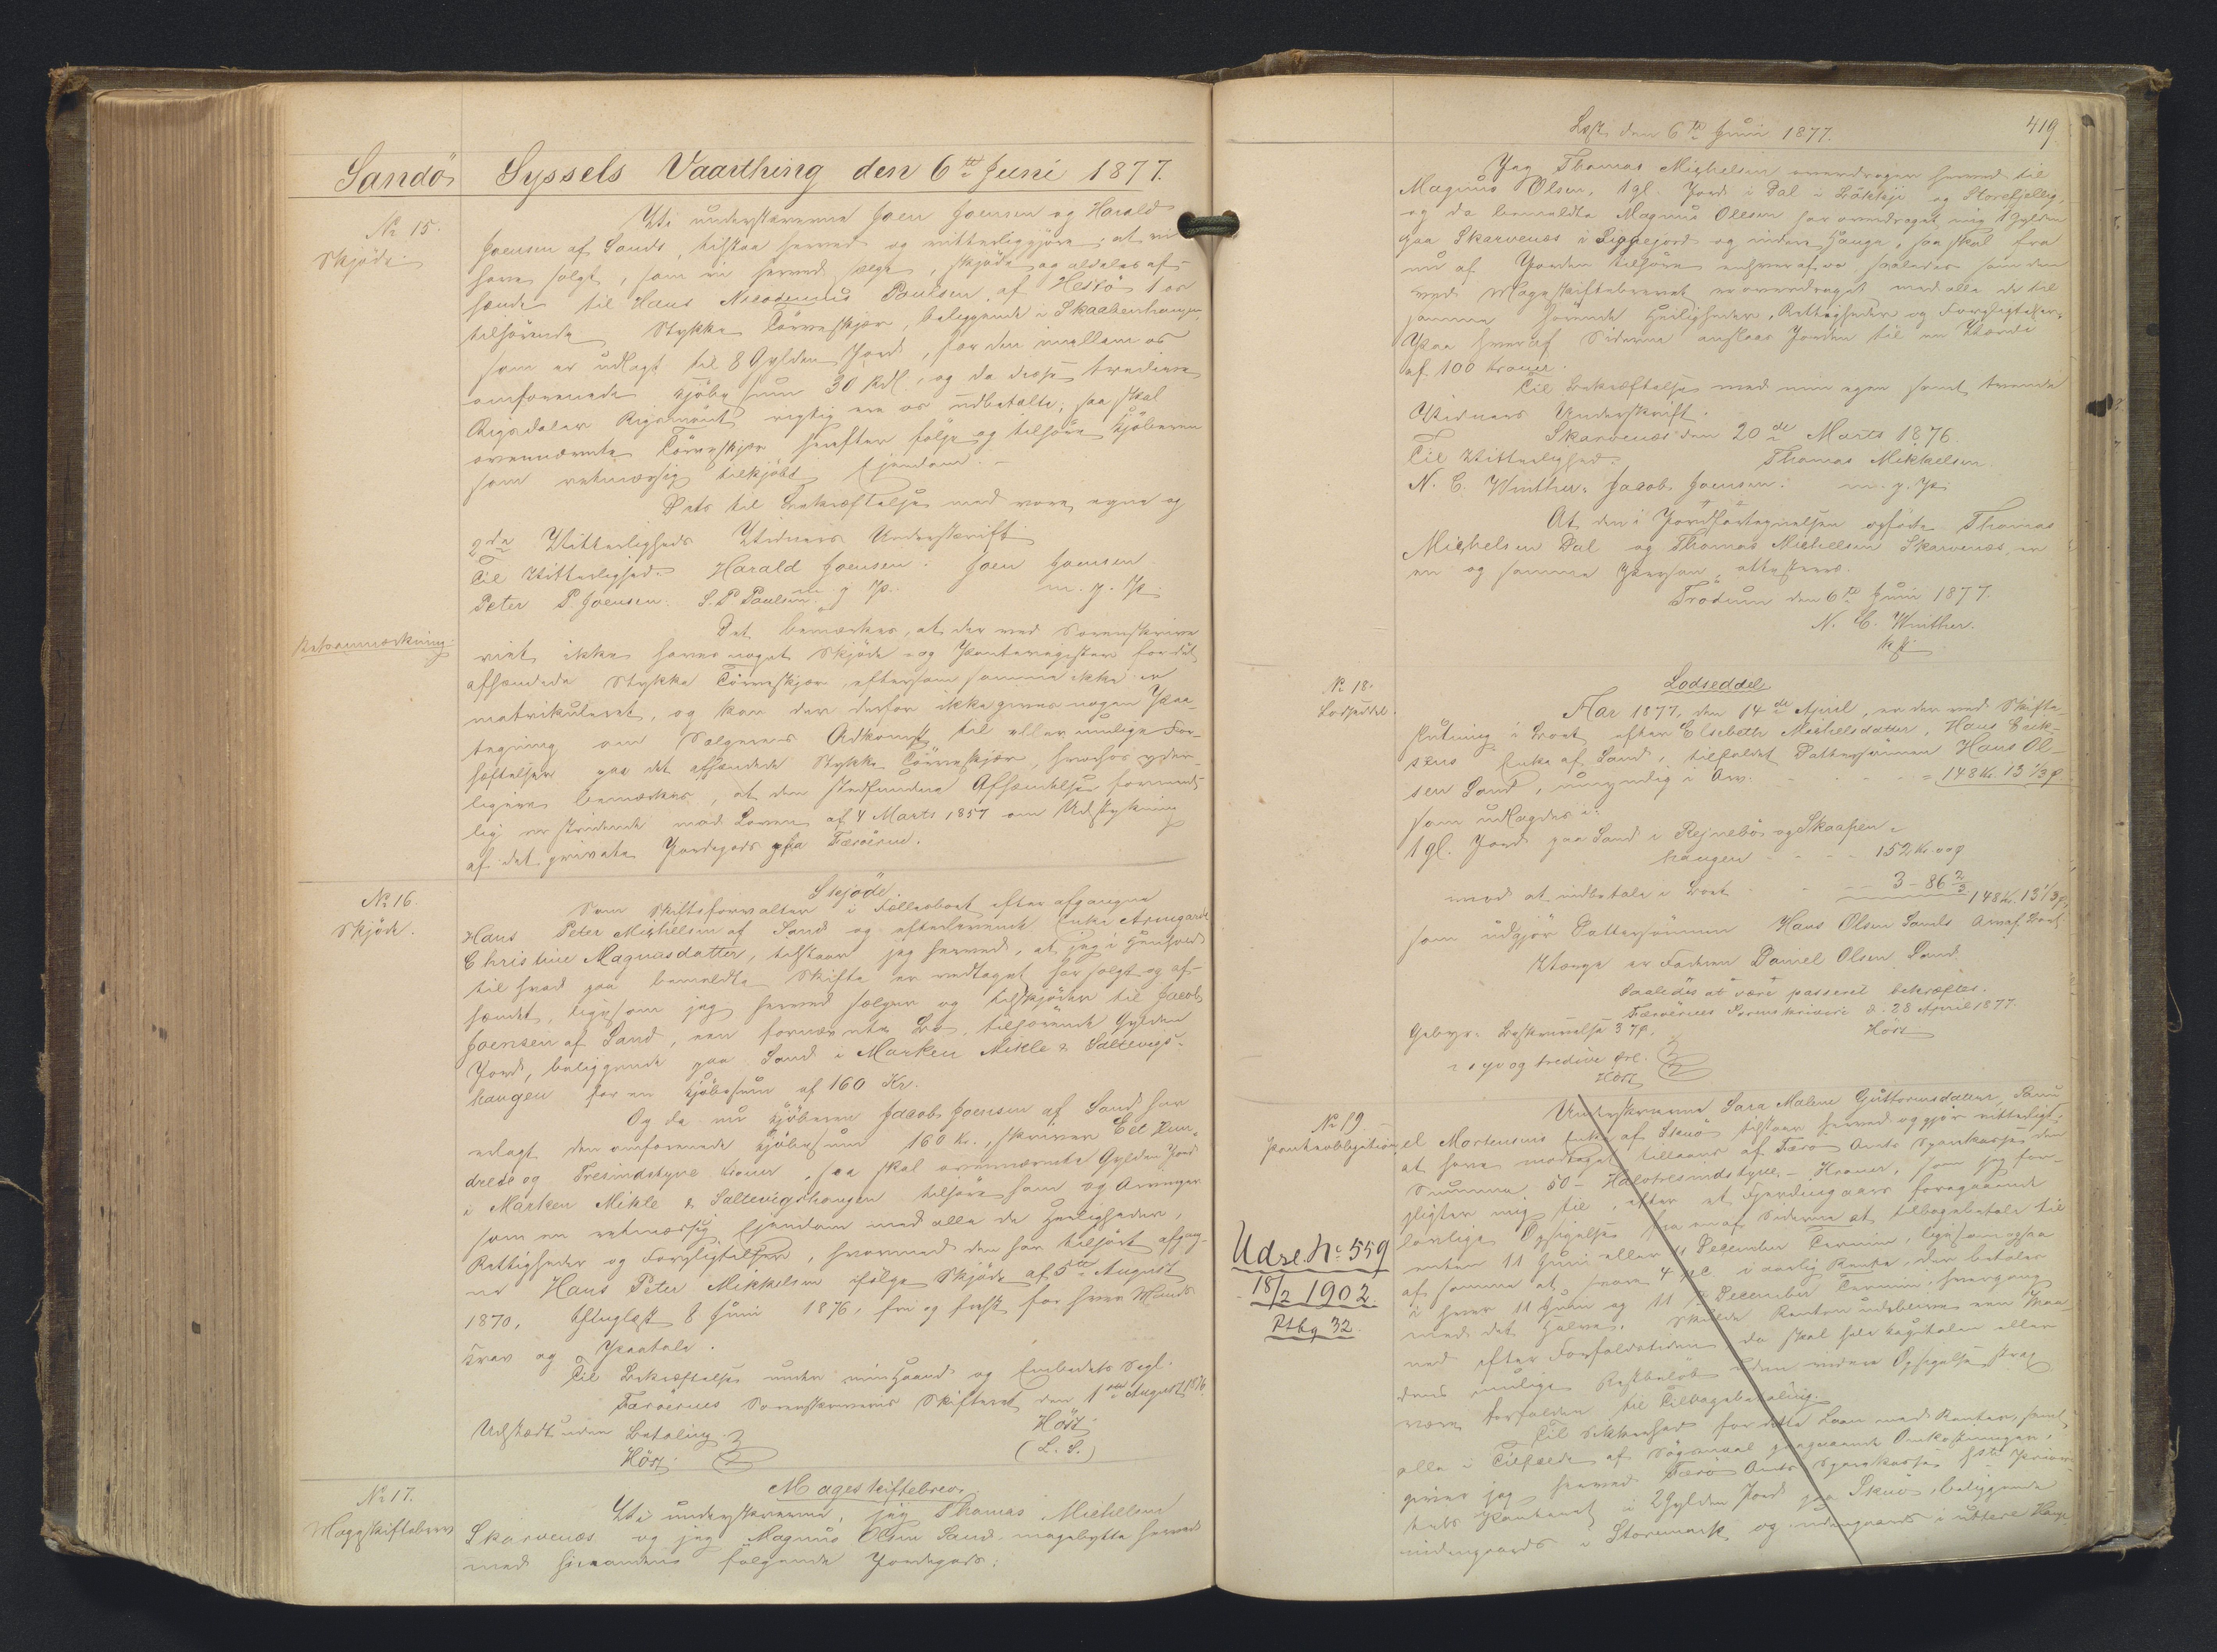 Sandö Syssels Vaarthing den 6te Juni 1877.
No 15.
Skjöde.
Vi underskrevne Joen Joensen og Harald
Joensen af Sands, tilstaa herved og vitterliggjöre, at vi
have solgt, som vi herved sælge, skjöde og aldeles af-
hænde til Hans Nicodemus Paulsen af Heskö 1 os
tilhörende Stykke Törveskjær, beliggende i Skaabenhaugen,
som er udlagt til 8 Gylden Jord, for den imellem os
omforenede Kjöbesum 30 Rdl., og da disse tredive
Rigsdaler Rigsmönt rigtig ere os udbetalte, saa skal
ovennævnte Törveskjær herefter fölge og tilhöre Kjöberen
som retmæssig tilkjöbt Ejendom.-
Dets til Bekræftelse med vore egne og
2de Vitterligheds Vidners Underskrift
Til Vitterlighed. Harald Joensen. Joen Joensen
Peter P. Joensen. S. P. Paulsen. m. f. P.
Retsanmærkning:
Det bemærkes, at der ved Sorenskrive
riet ikke haves noget Skjöde og Panteregister for det
afhændede Stykke Törveskjær, eftersom samme ikke er
matrikuleret, og kan der derfor ikke gives nogen Paa-
tegning om Sælgernes Adkomst til eller mulige Be-
hæftelser paa det afhændede Stykke Törveskjær, hvorhos yder-
ligere bemærkes, at den stedfundne Afhændelse forment-
lig er stridende mod Loven af 4 Marts 1857 om Udstykning
af det private Jordegods paa Færöerne.
No 16.
Skjöde.
Skjöde.
Som Skifteforvalter i Fællesboet efter afgangne
Hans Peter Michelsen af Sand og efterlevende Enke Armgard
Christine Magnusdatter, tilstaar jeg herved, at jeg i Henhold
til hvad paa bemeldte Skifte er vedtaget, har solgt og af-
hændet, ligesom jeg herved sælger og tilskjöder til Jacob
Joensen af Sand, een fornævnte Bo tilhörende Gylden
Jord, beliggende paa Sand i Marken Mikle & Saltevigs-
haugen for en Kjöbesum af 160 Kr.
Og da nu Kjöberen Jacob Joensen af Sand har
erlagt den omforenede Kjöbesum 160 Kr., skriver Eet Hun-
drede og Tresindstyve Kroner, saa skal ovennævnte Gylden Jord
i Marken Mikle & Saltevigshaugen tilhöre ham og Arvinger
som en retmæssig Ejendom med alle de Herligheder,
Rettigheder og Forpligtelser, hvormed den har tilhört afgang-
ne Hans Peter Mikkelsen ifölge Skjöde af 5te August
1870, thinglæst 8 Juni 1876, fri og frelst for hver Mands
Krav og Paatale.
Til Bekræftelse under min Haand og Embeds Segl.
Færöernes Sorenskriveris Skifteret, den 1ste August 1876.
Udstedt uden Betaling. Höst.
Höst. (L. S.)
No 17.
Mageskiftebrev
Mageskiftebrev.
Vi underskrevne, jeg Thomas Michelsen
Skarvenæs og jeg Magnus Olsen Sand magebytte herved
med hinanden fölgende Jordegods:
Læst den 6te Juni 1877.
419
Jeg Thomas Michelsen overdrager herved til
Magnus Olsen, 1 gl. Jord i Dal i og Storefjellig,
og da bemeldte Magnus Olsen har overdraget mig 1 Gylden
paa Skarvenæs i Liggejord og indere Hauge, saa skal fra
nu af Jorden tilhöre enhver af os saaledes som den
ved Mageskiftebrevet er overdraget med alle de til
samme hörende Herligheder, Rettigheder og Forpligtelser.
Paa hver af Siderne anslaaes Jorden til en Værdi
af 100 Kroner.
Til Bekræftelse med min egen samt tvende
Vidners Underskrift.
Skarvenæs den 20de Marts 1876.
Til Vitterlighed: Thomas Mikkelsen
N. C. Winther. Jacob Joensen. m. f. P.
At den i Jordfortegnelsen opförte Thomas
Michelsen Dal og Thomas Michelsen Skarvenæs, er
en og samme Person, attesteres.
Trödum den 6te Juni 1877.
N. C. Winther.
No 18.
Lodseddel.
Lodseddel
Aar 1877, den 14de April, er der ved Skifte-
slutning i Boet efter Elsebeth Michelsdatter, Hans Erik-
sens Enke af Sand, tilfaldet Dattersönnen Hans Ol-
sen Sand, umyndig i Arv. - - - - = 148 Kr. 13 1/3 ø.
som udlægges i:
1 gl. Jord paa Sand i Rejnebö og Skaapen-
haugen - - - - 152 Kr. 00 ø
mod at indbetale i Boet - - - 3 - 86 2/3 148 Kr. 13 1/3 ø
som udgjör Dattersönnen Hans Olsen Sands Arvelod.
Værge er Faderen Daniel Olsen Sand.
Saaledes at være passeret bekræftes.
Færöernes Sorenskriveri d. 28 April 1877.
Gebyr: Beskrivelse 37 ø. Höst
syv og tredive Øre.
Höst
No 19.
Panteobligation
Underskrevne Sara Malene Guttormsdatter, Samu
el Mortensens Enke af Skuö tilstaar herved og gjör vitterligt,
at have modtaget tillaans af Færö Amts Sparekasse den
Summa 50 - Halvtresindstyve - Kroner, som jeg for-
pligter mig til, efter et Fjerdingaars foregaaende
lovlige Opsigelse fra en af Siderne at tilbagebetale til
enten 11 Juni eller 11 December Termin, ligesom ogsaa
af samme at svare 4 pC. i aarlig Rente, der betales
i hver 11 Juni og 11 December Termin, hvergang
med det Halve. Skulde Renten udeblive een Maa-
ned efter Forfaldstiden da skal hele Kapitalen eller
dens mulige Restbelöb uden videre Opsigelse strax
være forfalden til Tilbagebetaling.
Til Sikkerhed for dette Laan med Renter, samt
alle i Tilfælde af Sögsmaal paagaaende Omkostninger,
giver jeg herved Færö Amts Sparekasse 1ste Priori-
tets Panteret i 2 Gylden Jord paa Skuö, beliggende
indengaards i Storemark og udengaards i udtere Hauge
Udsl. No 559
18/2 1902.
Ptbg 32.